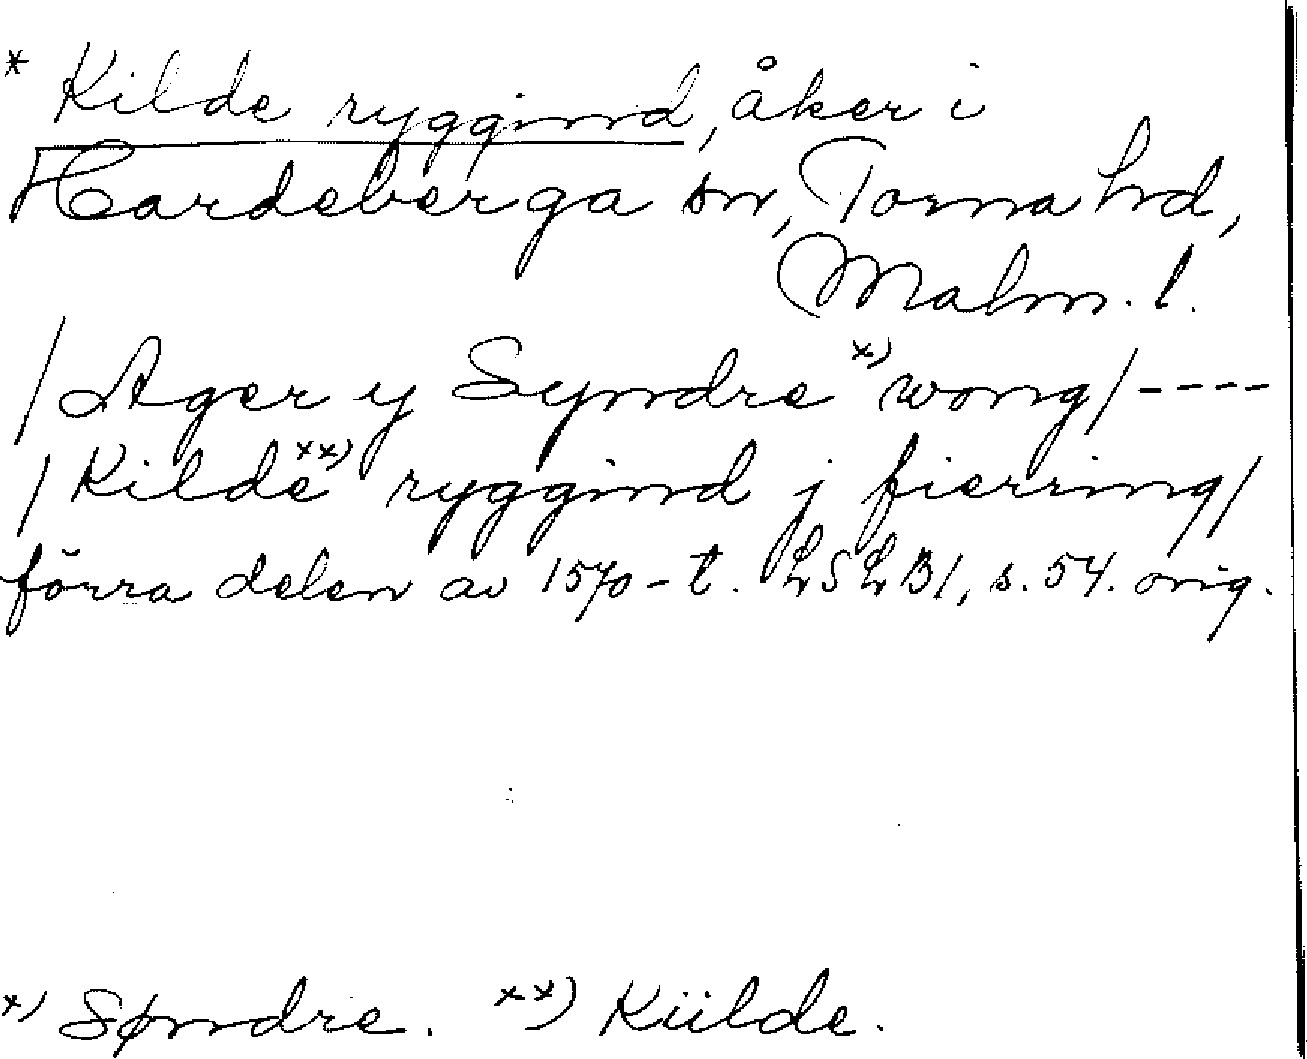 * Kilde ryggind, åker i
Hardeberga sn, Torna hd,
Malm. l.
/Ager y Syndre *) wong/----
/Kilde **) ryggind j fierring/
förra delen av 1570-t. LSLB1, s. 54. orig.
*) Søndre. **) Kiilde.